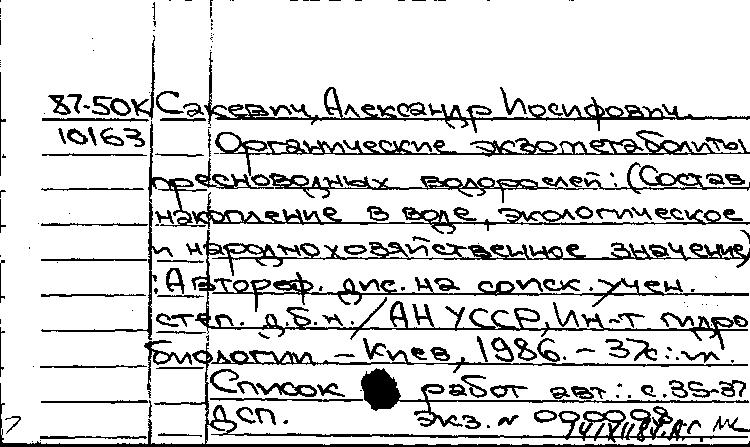 87-50К Сакевич, Александр Иосифович.
10163 Органические экзометаболиты
пресноводных водорослей: (Состав,
накопление в воде, экологическое
и народнохозяйственное значение)
: Автореф. дис. на соиск. учен.
степ. д.б.н. / АН УССР, Ин-т гидро
биологии. – Киев, 1986. – 37с.: ил.
Список работ авт.: с. 35-37
ДСП. экз. N 000098